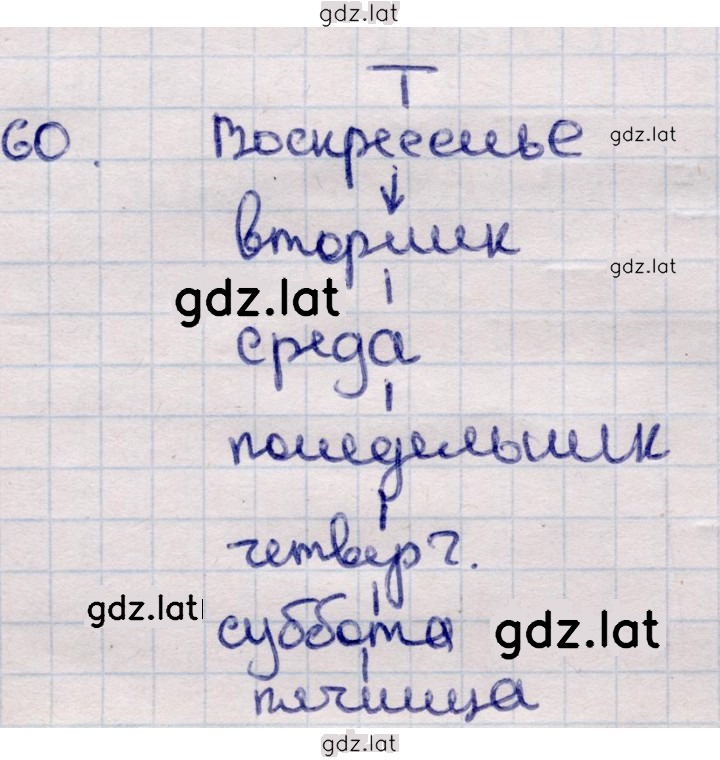 gdz.lat
T
60. Воскресенье
gdz.lat
вторник
gdz.lat
gdz.lat
среда
понедельник
четверг.
gdz.lat
суббота
gdz.lat
пятница
gdz.lat